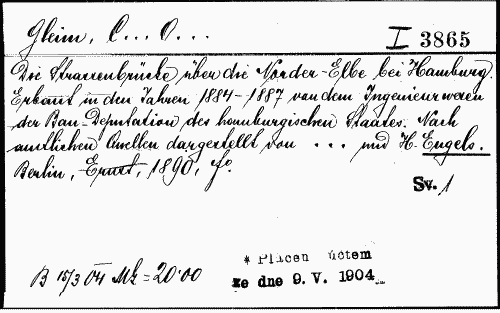 Gleim, C... O...
I 3865
Die Strassenbrücke über die Norder-Elbe bei Hamburg.
Erbaut in den Jahren 1884-1887 von dem Ingenieurwesen
der Bau-Deputation des hamburgischen Staates. Nach
amtlichen Quellen dargestellt von ... und H. Engels.
Berlin, Ernst, 1890, fo.
Sv. 1
B 15/3 04 Mk = 20·00
* Placen účtem
ze dne 9. V. 1904